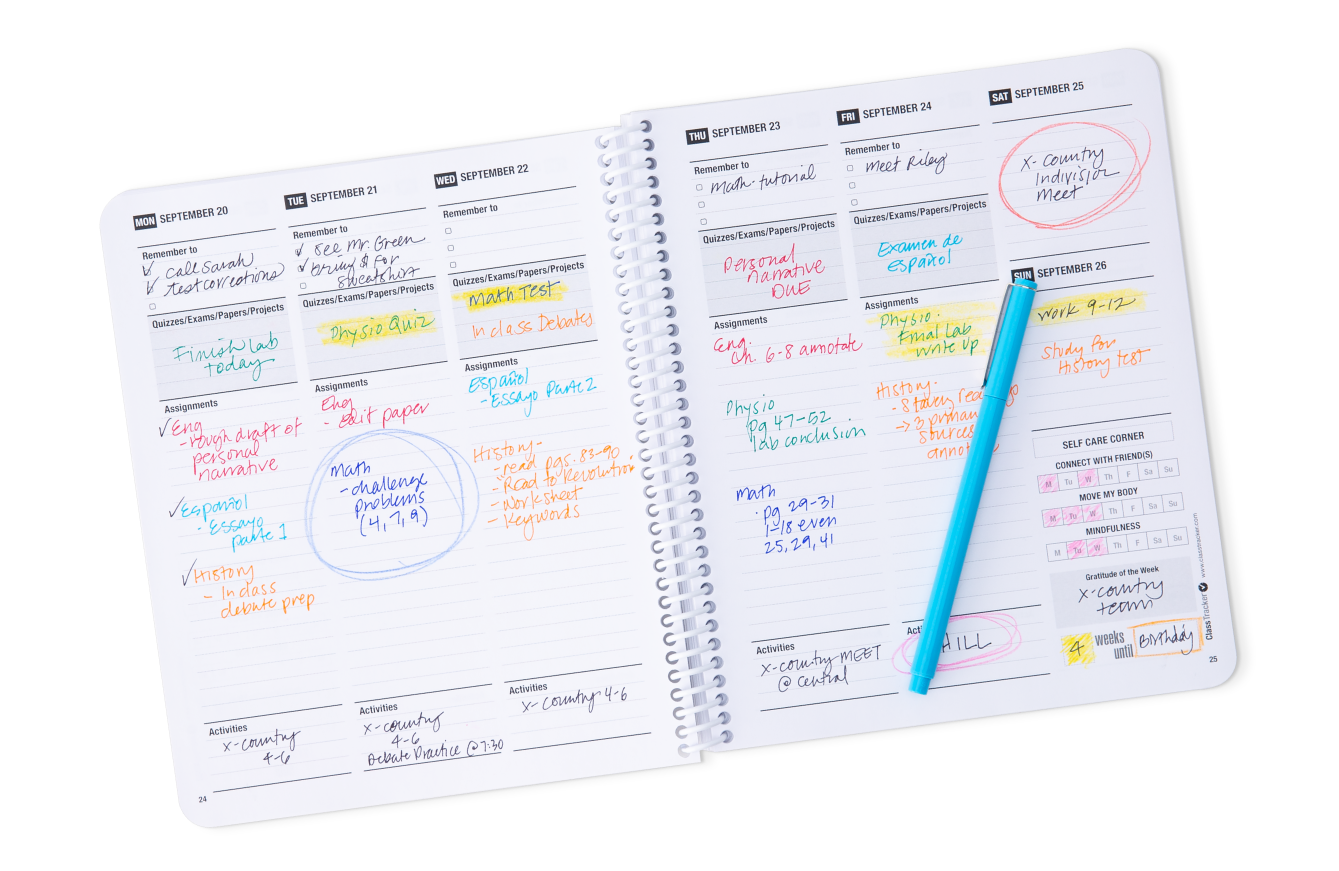 MON SEPTEMBER 20
Remember to
call Sarah
test corrections
Quizzes/Exams/Papers/Projects
Finish lab
today
Assignments
Eng
- rough draft of
personal
narrative
Español
- Essayo
parte 1
History
- In class
debate prep
Activities
x-country
4-6
24
TUE SEPTEMBER 21
Remember to
See Mr. Green
bring $ for
sweatshirt
Quizzes/Exams/Papers/Projects
Physio Quiz
Assignments
Eng
- Edit paper
Math
- challenge
problems
(4,7,9)
Activities
x-country
4-6
Debate Practice @ 7:30
WED SEPTEMBER 22
Remember to
Quizzes/Exams/Papers/Projects
Math Test
In class Debates
Assignments
Español
- Essayo Parte 2
History-
- read pgs. 83-90
- Road to Revolution
- Worksheet
- Keywords
Activities
x-country 4-6
THU SEPTEMBER 23
Remember to
Math-tutorial
Quizzes/Exams/Papers/Projects
Personal
narrative
DUE
Assignments
Eng.
Ch 6-8 annotate
Physio
pg 47-52
lab conclusion
Math
· pg 29-31
1-18 even
25, 29, 41
Activities
x-country MEET
@ Central
FRI SEPTEMBER 24
Remember to
Meet Riley
Quizzes/Exams/Papers/Projects
Examen de
español
Assignments
Physio:
Final Lab
write up
History:
→ 3
sources
HILL
SAT SEPTEMBER 25
x-country
Indivisior
Meet
SUN SEPTEMBER 26
work 9-12
Study for
History test
SELF CARE CORNER
CONNECT WITH FRIEND(S)
M Tu W Th F Sa Su
MOVE MY BODY
M Tu W Th F Sa Su
MINDFULNESS
M Tu W Th F Sa Su
Gratitude of the Week
x-country
team
4 weeks until Birthday
ClassTracker www.classtracker.com
25